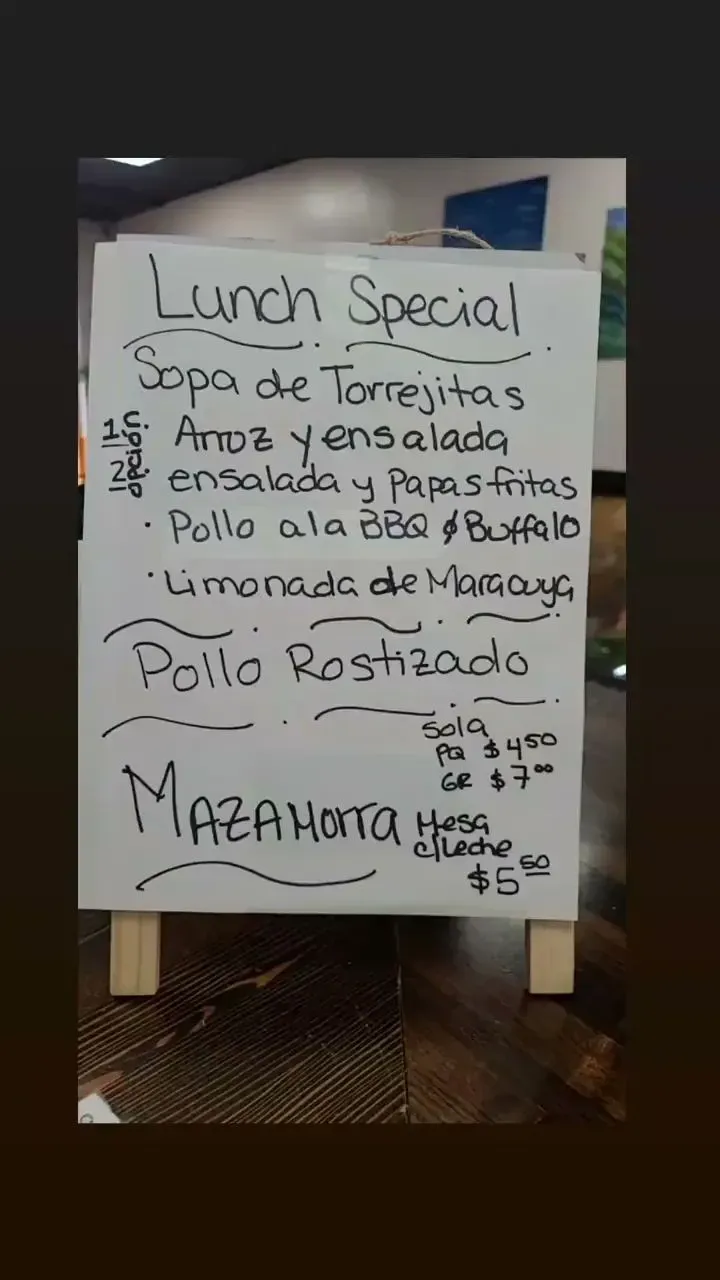 Lunch Special
Sopa de Torrejitas
1. Arroz y ensalada
2 opción. ensalada y Papas fritas
· Pollo a la BBQ ó Buffalo
· Limonada de Maracuya
Pollo Rostizado
Sola
PQ $450
GR $7.00
MAZAMorra Mesa
c/Leche
$550